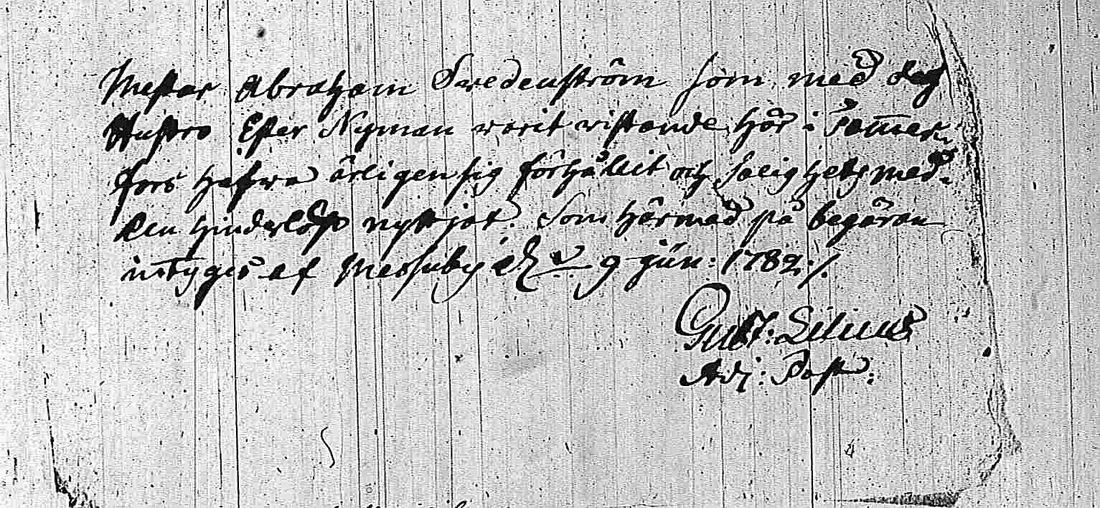 Mestar Abraham Swedenström som med des
Hustro Ester Nyman warit wistande här i Tammer-
fors hafwa ärligen sig förhållit och salighets med-
len hinderlöst nyttjat. Som härmed på begäran
intyges af Messuby d. 9 Jun: 1782:/.
Gust: Lilius
Adj: Past: